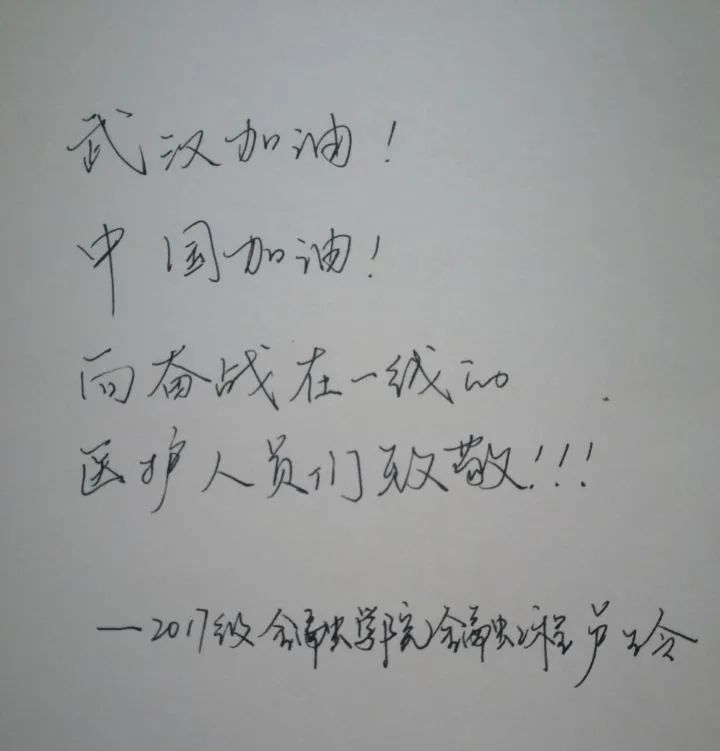 武汉加油!
中国加油!
向奋战在一线的
医护人员们致敬!!!
—2017级金融学院金融工程卢玲